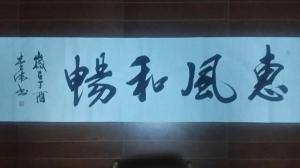 惠風和暢
歲在丁酉